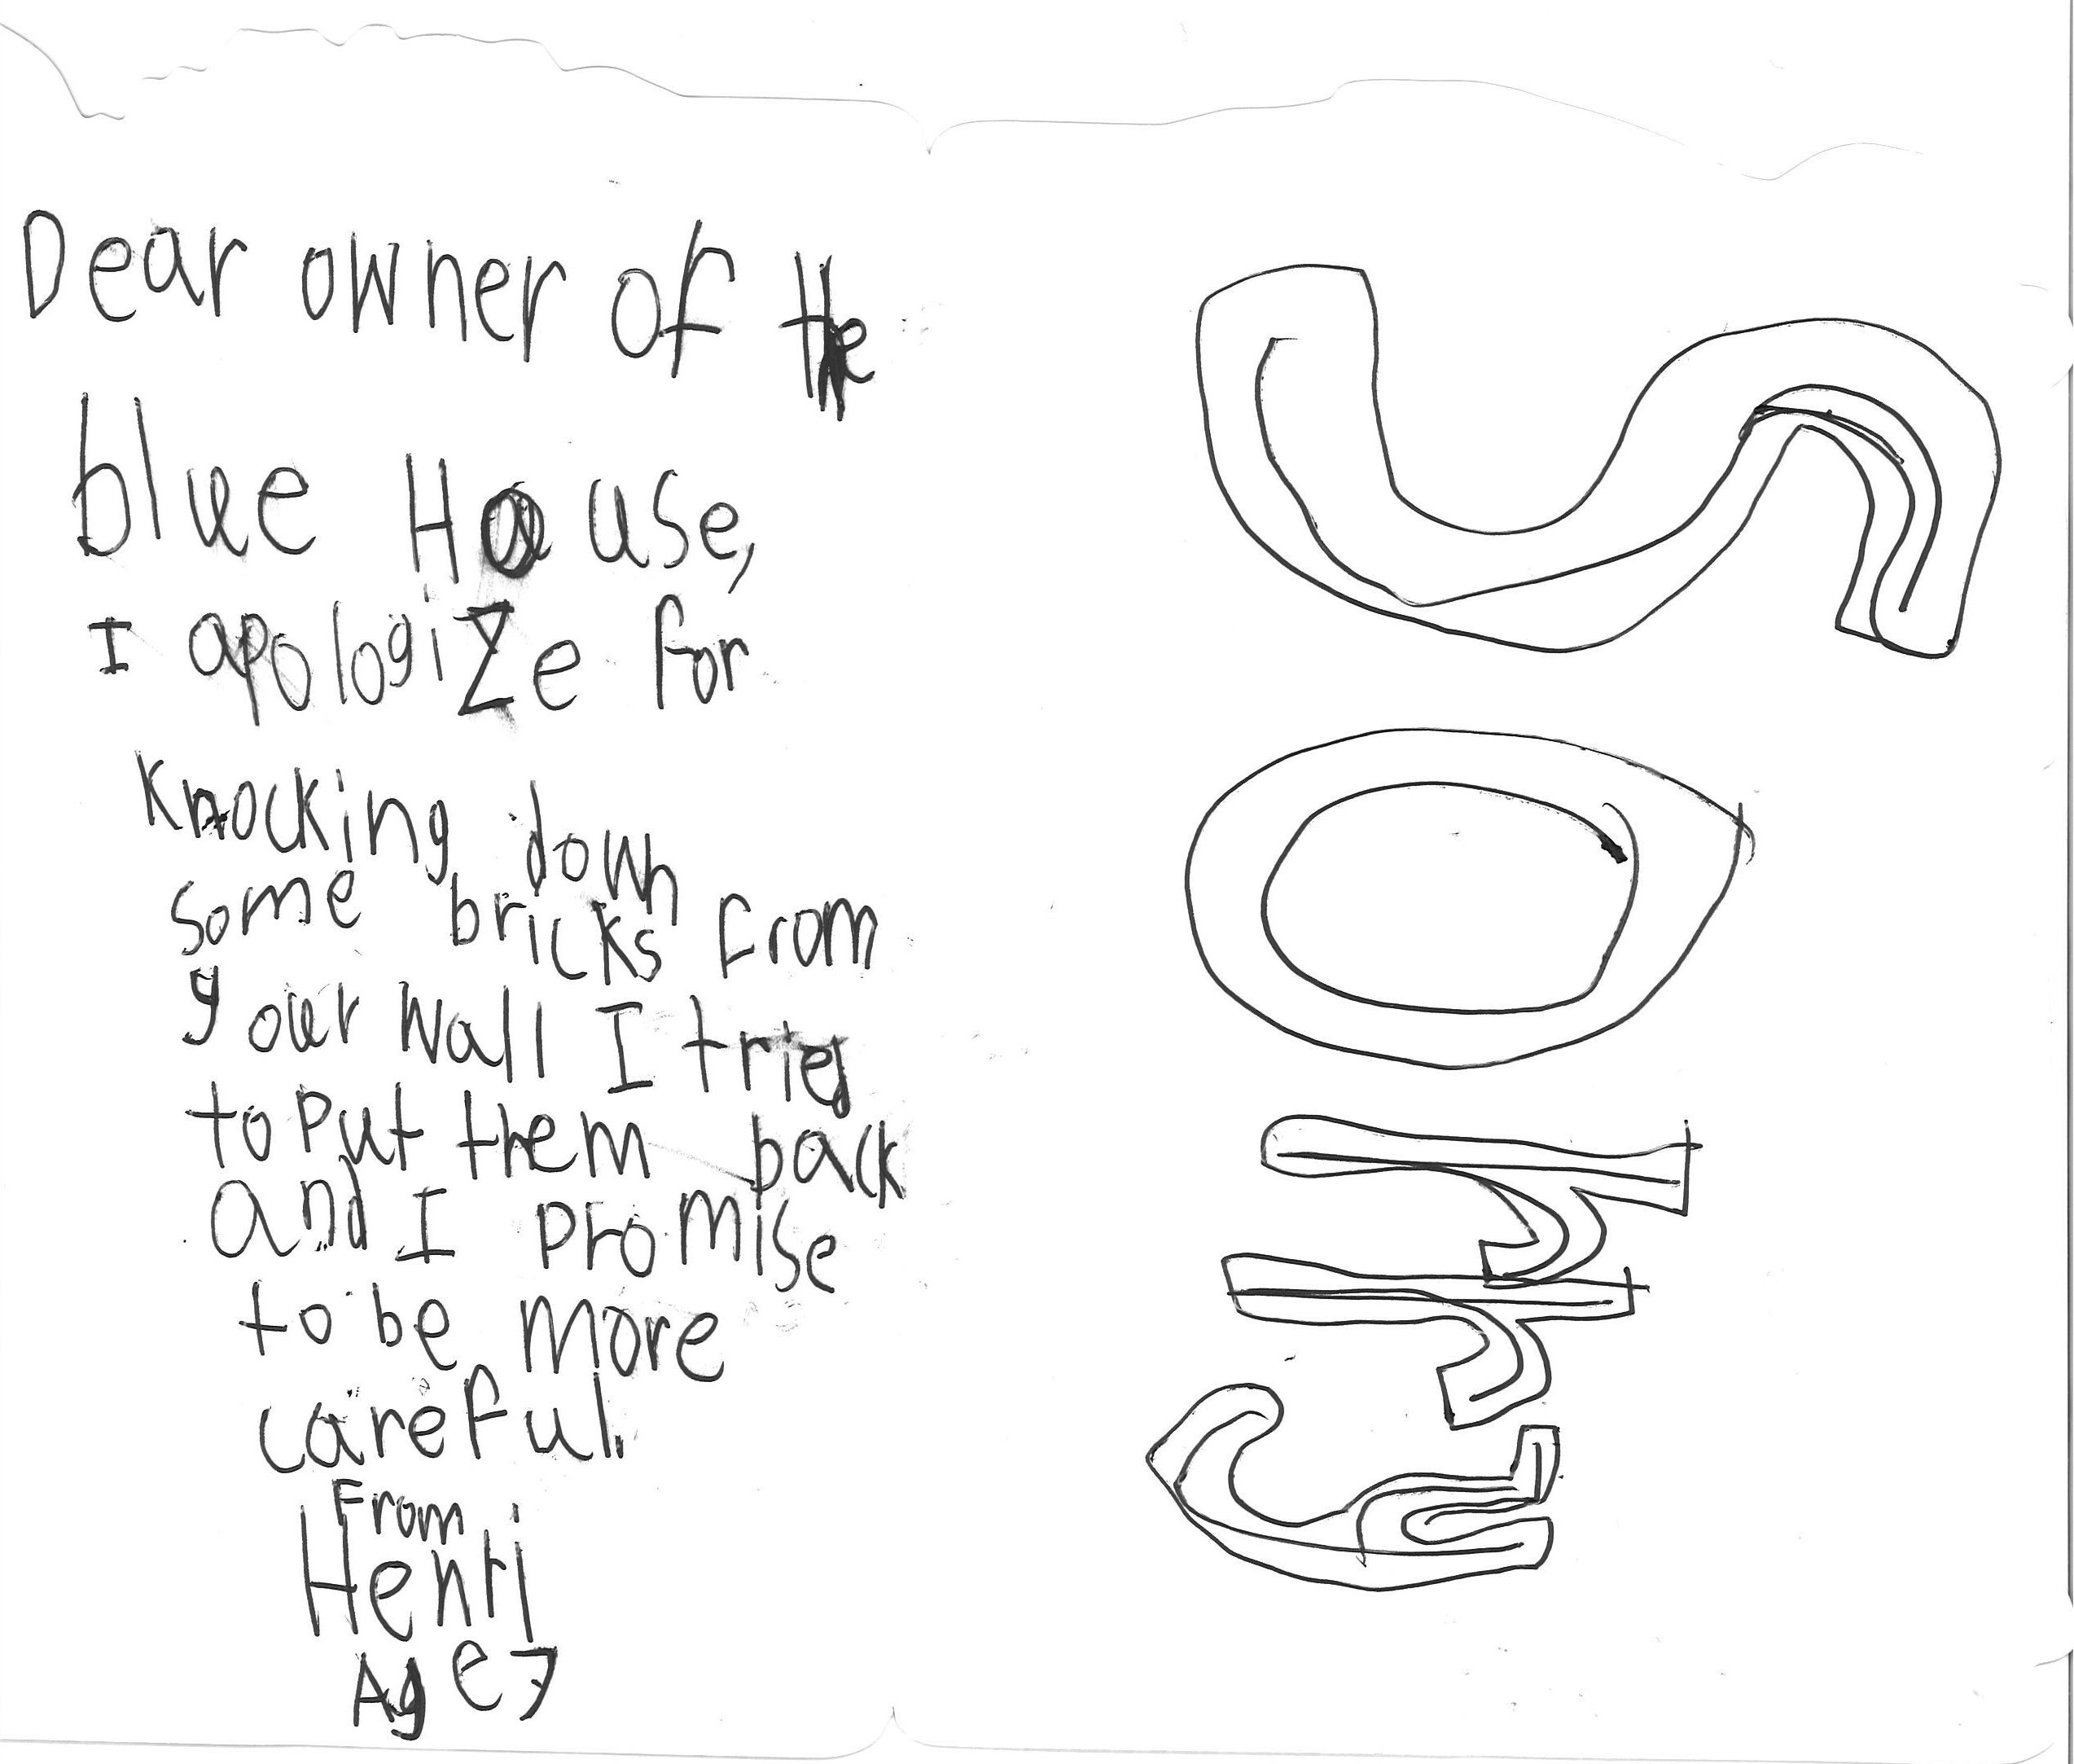 Dear owner of the
blue House,
I apologize for
Knocking down
some bricks from
your wall I tried
to put them back
and I promise
to be more
careful.
From
Henri
Age 7
Sorry